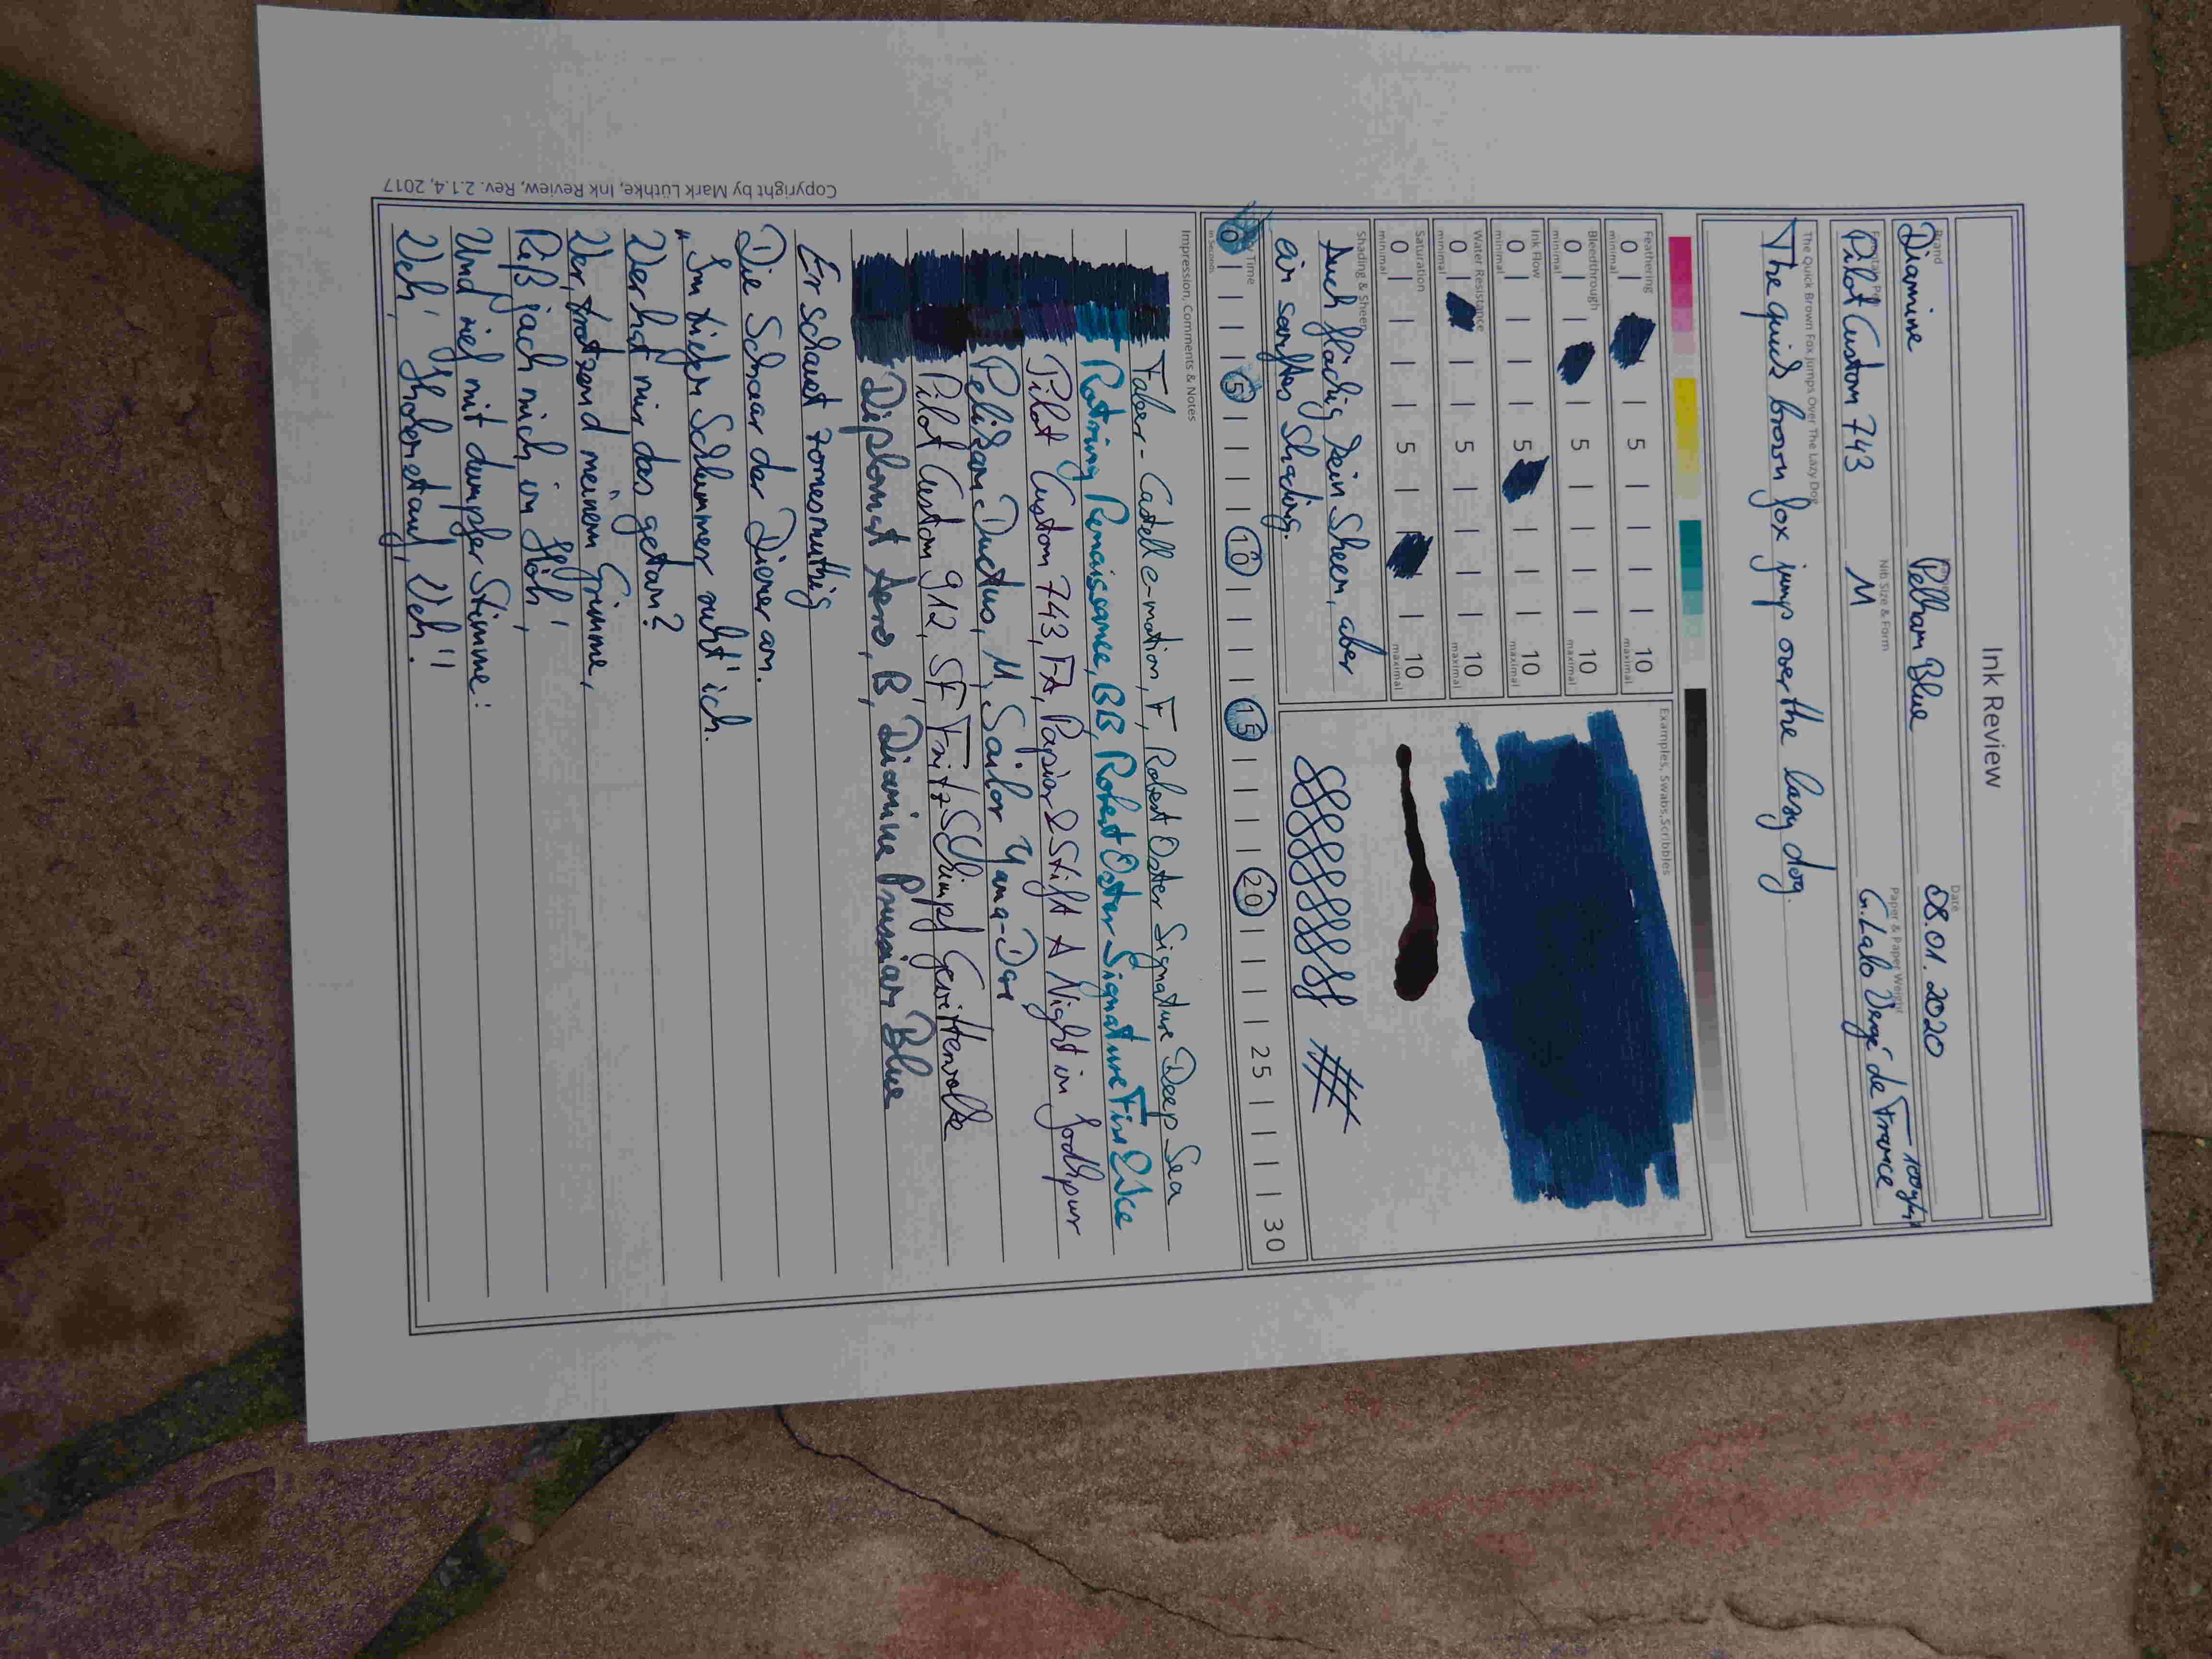 Ink Review
Brand
Diamine
Pelham Blue
Date
28.01.2020
Pilot Custom 743
Nib Size & Form
M
Paper & Paper Weight
G. Lalo Vergé de France
The Quick Brown Fox Jumps Over The Lazy Dog
The quick brown fox jumps over the lazy dog.
Feathering
0 5 10
minimal maximal
Bleedthrough
0 5 10
minimal maximal
Ink Flow
0 5 10
minimal maximal
Water Resistance
0 5 10
minimal maximal
Saturation
0 5 10
minimal maximal
Shading & Sheen
Auch flächig kein Sheen, aber
ein sanftes Shading.
Examples, Swabs, Scribbles
Time
in Seconds
0 5 10 15 20 25 30
Impression, Comments & Notes
Faber-Castell e-motion, F, Robert Oster Signature Deep Sea
Rotring Renaissance, BB, Robert Oster Signature Fire & Ice
Pilot Custom 743, FA, Papier & Stift A Night in Jodhpur
Pelikan Ductus, M, Sailor Yama-Dori
Pilot Custom 912, SF Fritz-Schimpf Gewitterwolke
Diplomat Aero, B, Diamine Prussian Blue
Er schauet zornesmuthig
Die Schaar der Diener an.
„Im tiefen Schlummer ruht' ich.
Wer hat mir das getan?
Wer, trotzend meinem Grimme,
Riß jach mich in die Höh',
Und rief mit dumpfer Stimme:
Copyright by Mark Lüthke, Ink Review, Rev. 2.1.4, 2017